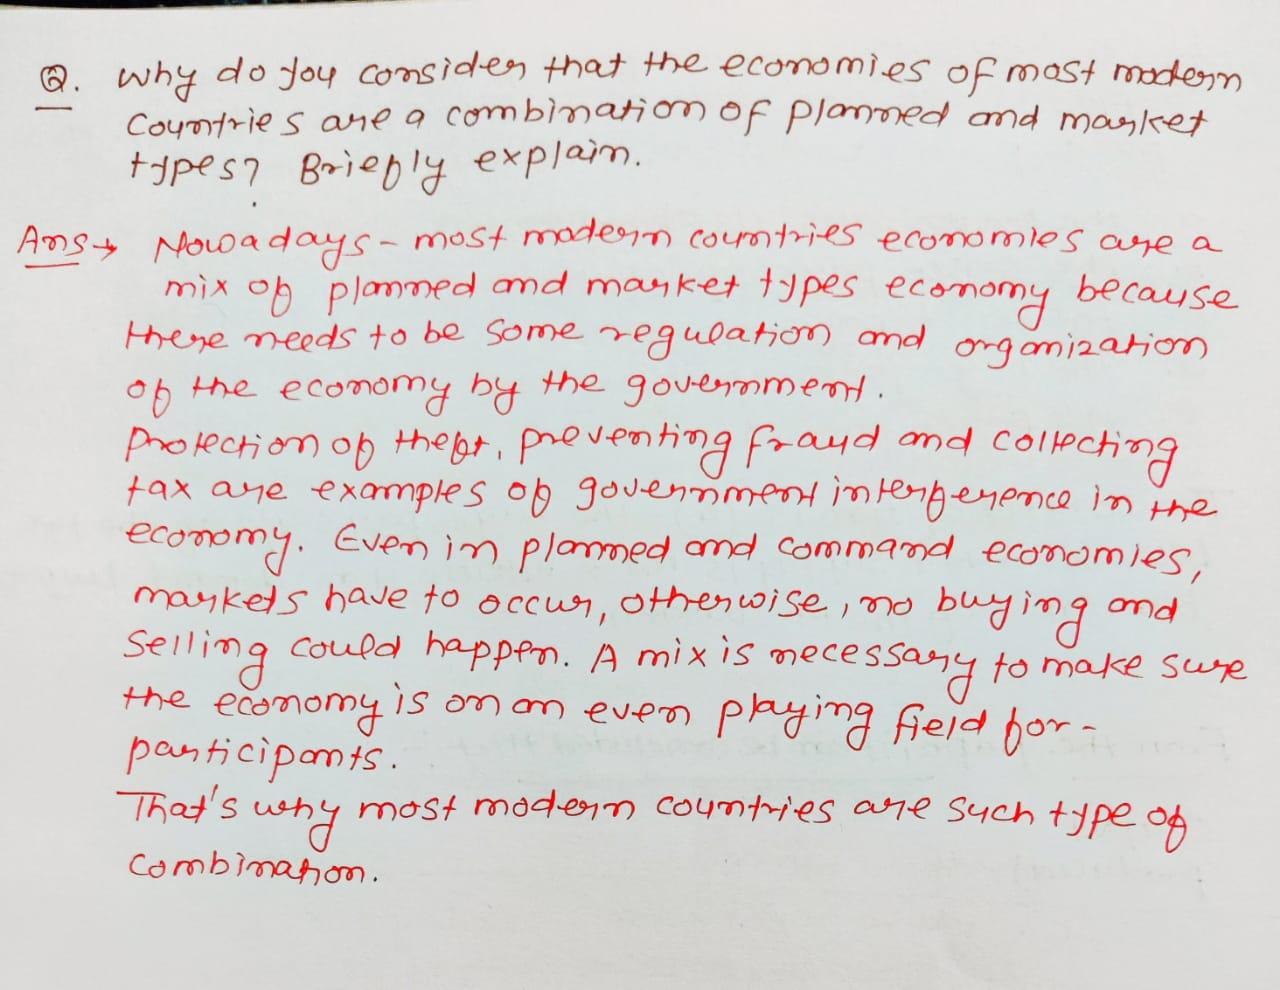 Q. Why do you consider that the economies of most modern
Countries are a combination of planned and market
types? Briefly explain.
Ans→ Nowadays - most modern countries economies are a
mix of planned and market types economy because
there needs to be some regulation and organization
of the economy by the government.
Protection of theft, preventing fraud and collecting
tax are examples of government interference in the
economy. Even in planned and command economies,
markets have to occur, otherwise, no buying and
selling could happen. A mix is necessary to make sure
the economy is on an even playing field for -
participants.
That's why most modern countries are such type of
combination.